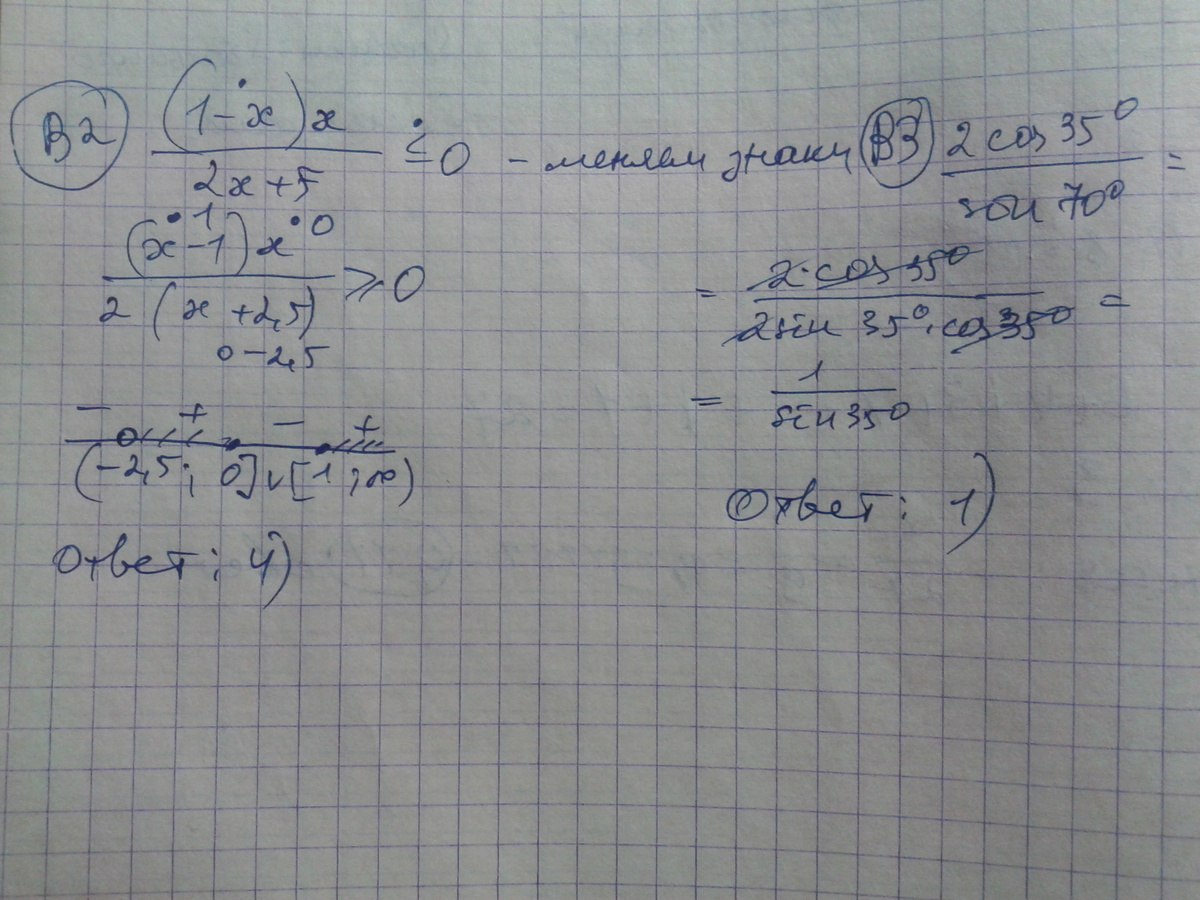 В2 (1-x)x / 2x+5 ≤ 0 - меняем знаки
(x-1)x / 2(x+2,5) ≥ 0
1 0
-2,5
- + - +
(-2,5; 0]∪[1; ∞)
Ответ: 4)
В3 2 cos 35° / sin 70° =
= 2·cos 35° / 2sin 35°·cos 35° =
= 1 / sin 35°
Ответ: 1)